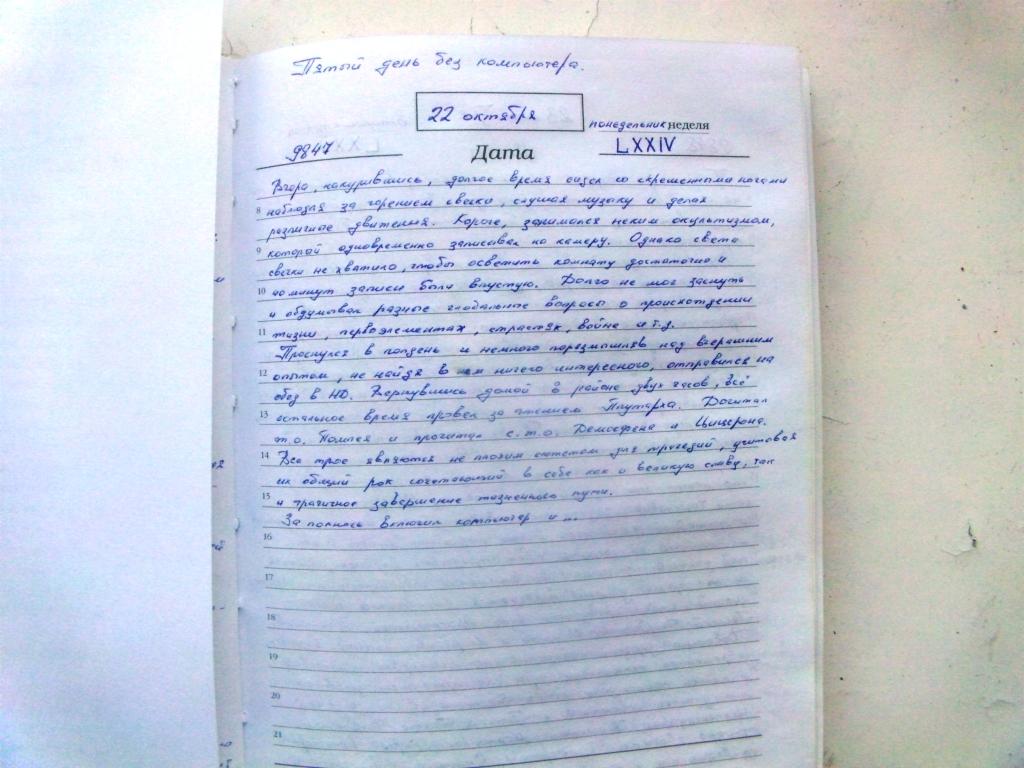 Пятый день без компьютера.
22 октября
понедельник неделя
9847 LXXIV
Дата
Вчера, накурившись, долгое время сидел со скрещенными ногами
8 наблюдая за горением свечи, слушая музыку и делая
различные движения. Короче, занимался неким окультизмом,
9 который одновременно записывал на камеру. Однако света
свечи не хватило, чтобы осветить комнату достаточно и
10 40 минут записи были впустую. Долго не мог заснуть
и обдумывал разные глобальные вопросы о происхождении
11 жизни, первоэлементах, страстях, войне и т.д.
Проснулся в полдень и немного поразмышляв над вчерашним
12 опытом, не найдя в нем ничего интересного, отправился на
обед в НД. Вернувшись домой в районе двух часов, всё
13 остальное время провел за чтением Плутарха. Дочитал
т.о. Помпея и прочитал с.т.о. Демосфена и Цицерона.
14 Все трое являются не плохим сюжетом для трагедий, учитывая
их общий рок сочетающий в себе как и великую славу, так
15 и трагичное завершение жизненного пути.
За полночь включил компьютер и ...
16
17
18
19
20
21